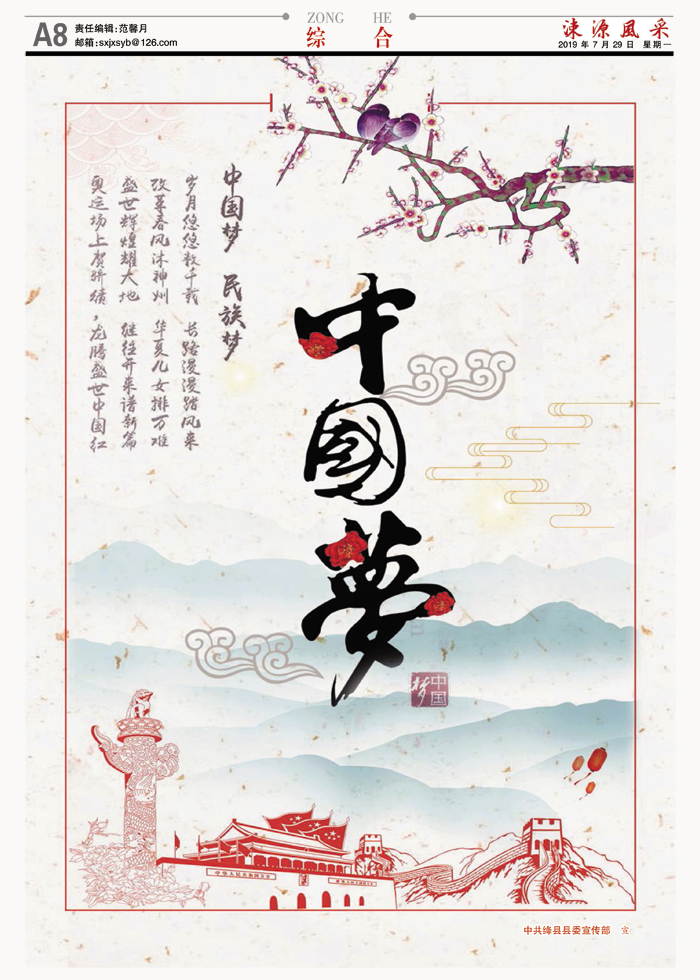 A8
责任编辑:范馨月
邮箱:sxjxsyb@126.com
ZONG HE
综 合
涑源風采
2019 年 7 月 29 日 星期一
中国梦 民族梦
岁月悠悠数千载 长路漫漫踏风来
改革春风沐神州 华夏儿女排万难
盛世辉煌耀大地 继往开来谱新篇
奥运场上贺骄绩,龙腾盛世中国红
中國夢
中国梦
中共绛县县委宣传部 宣